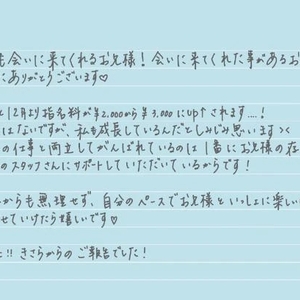 も会いに来てくれるお兄様！会いに来てくれた事があるお
にありがとうございます♡
と12月より指名料が¥2,000から¥3,000にup↑されます…！
はないですが、私も成長しているんだとしみじみ思います><
の仕事と両立してがんばれているのは1番にお兄様の存
のスタッフさんにサポートしていただいているからです！
からも無理せず、自分のペースでお兄様といっしょに楽しい
せていけたら嬉しいです♡
!! きさらからのご報告でした！